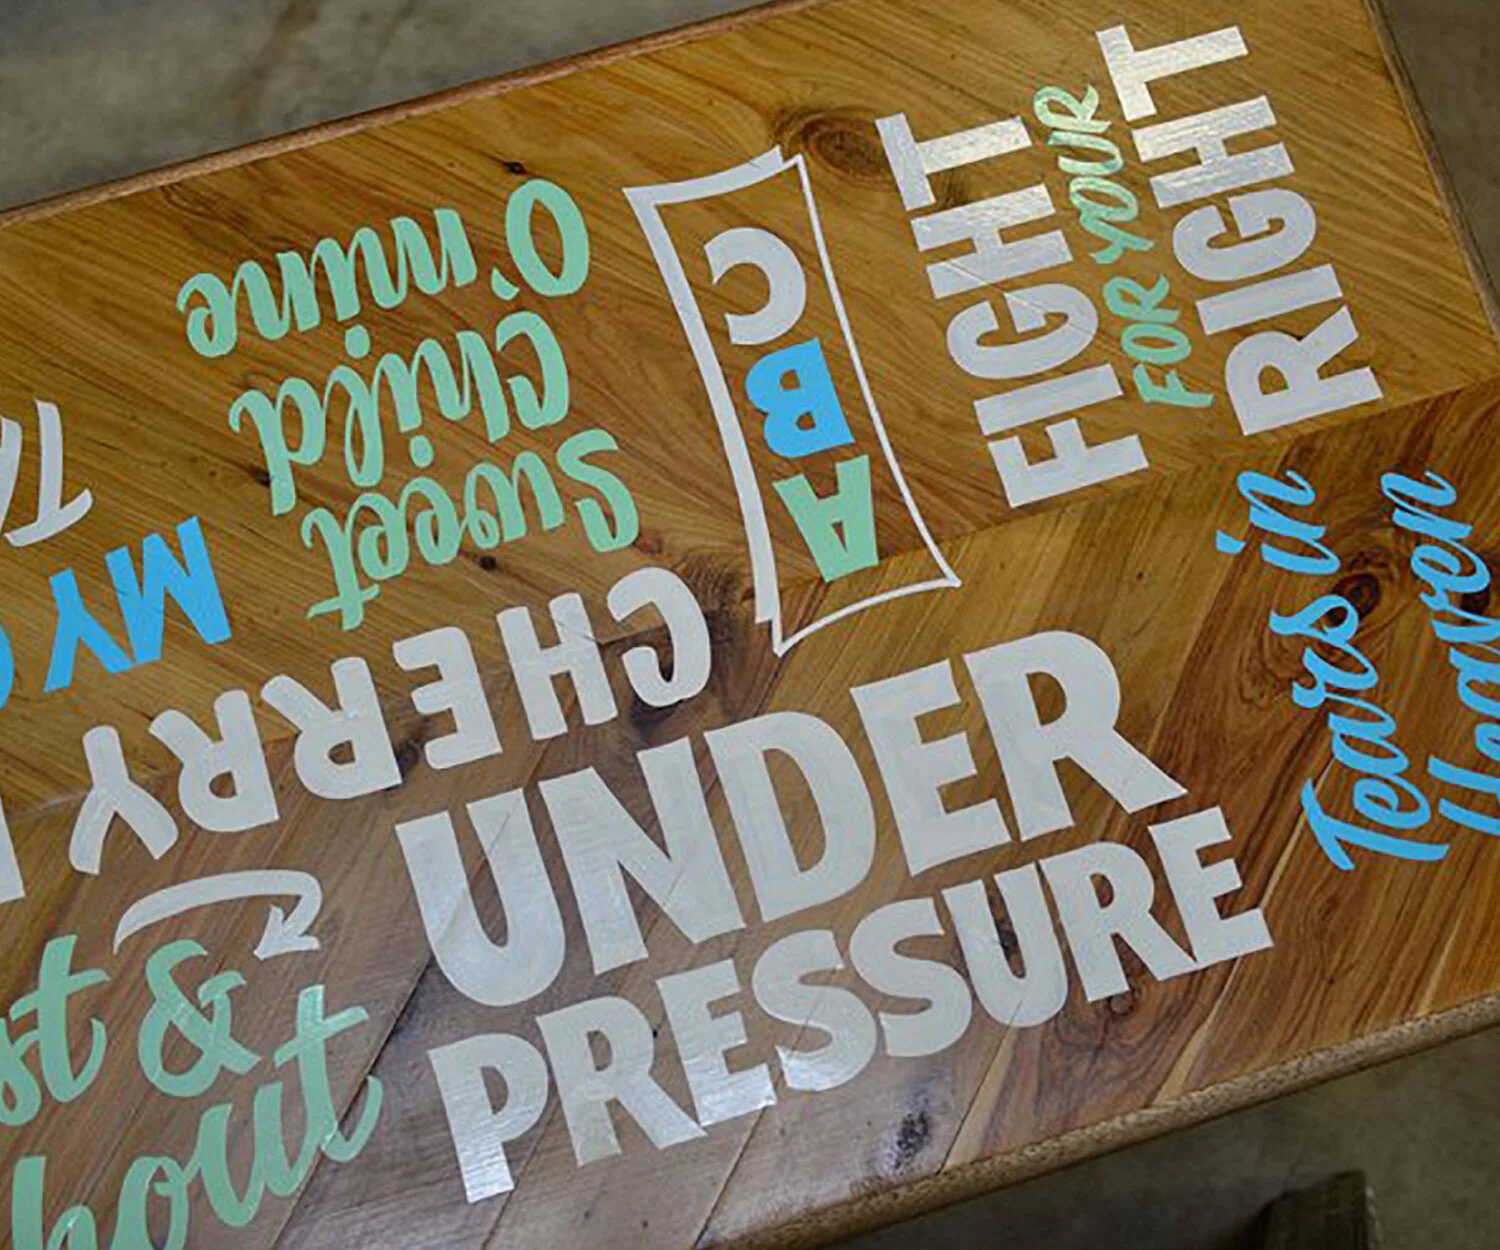 UNDER
PRESSURE
FIGHT
FOR YOUR
RIGHT
Tears in
Heaven
ABC
Sweet
Child
O'mine
CHERRY
MY
st &
hout